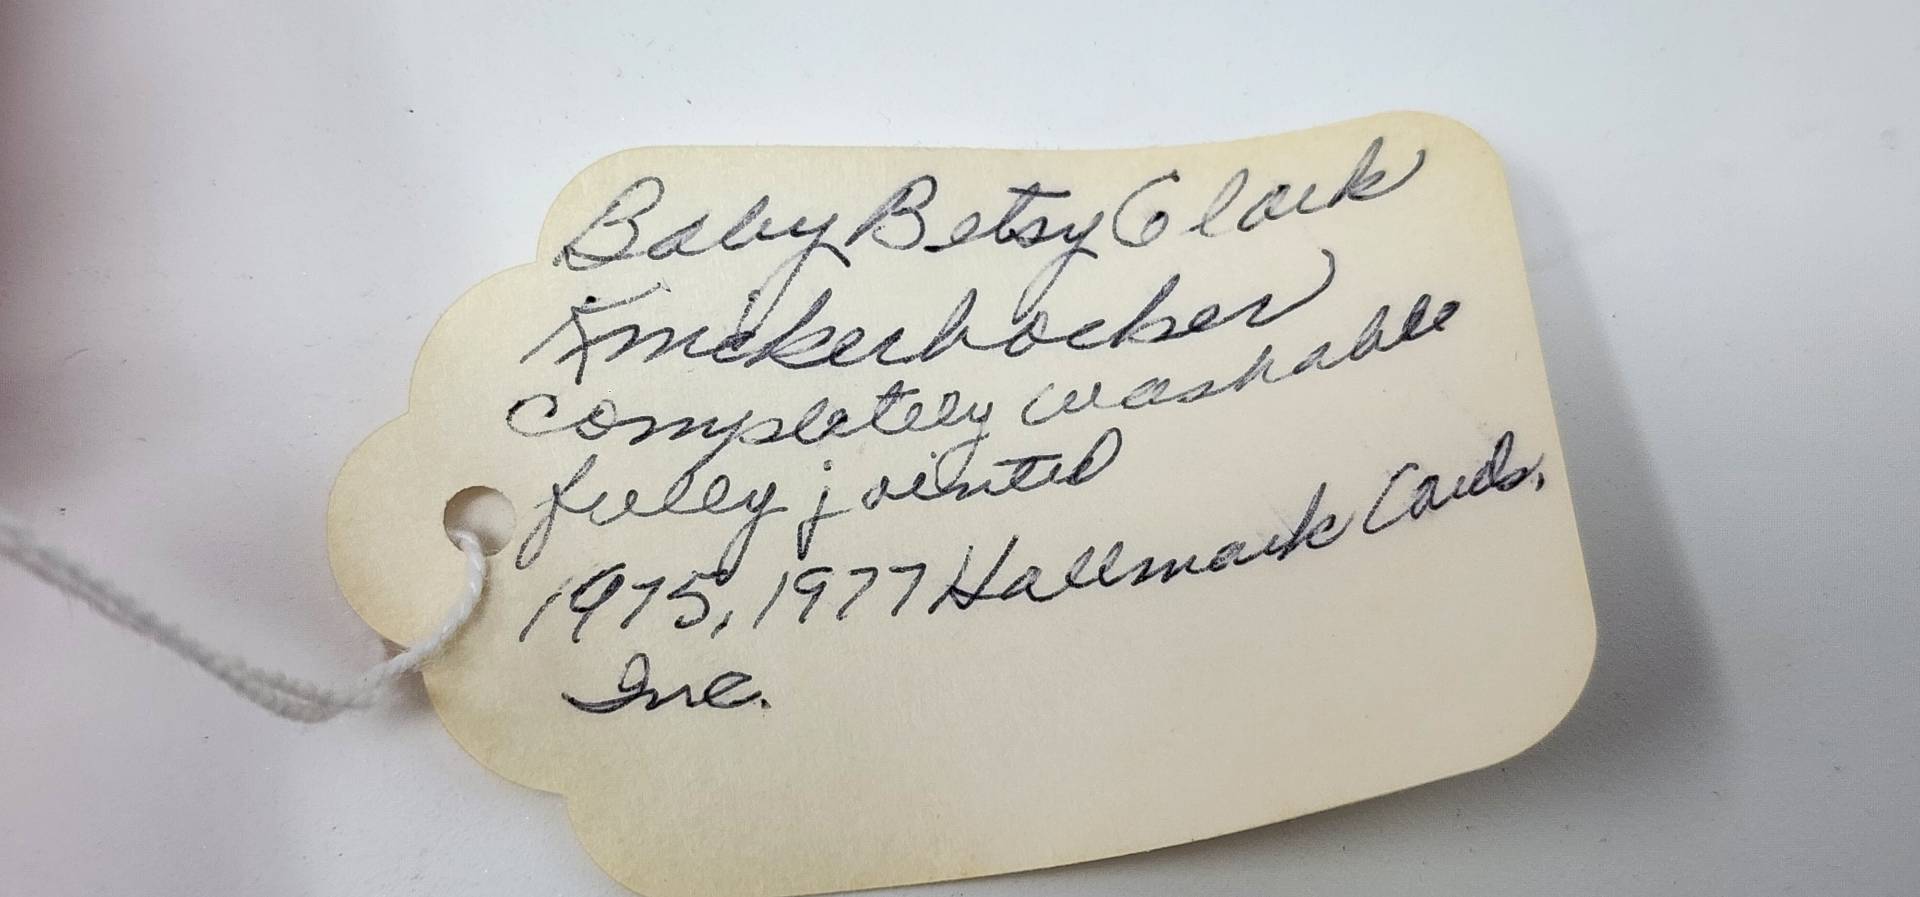 Baby Betsy Clark
Knickerbocker
completely washable
fully jointed
1975, 1977 Hallmark Cards,
Inc.